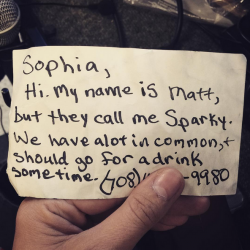 Sophia,
Hi. My name is Matt,
but they call me Sparky.
We have alot in common, +
should go for a drink
sometime. -9980